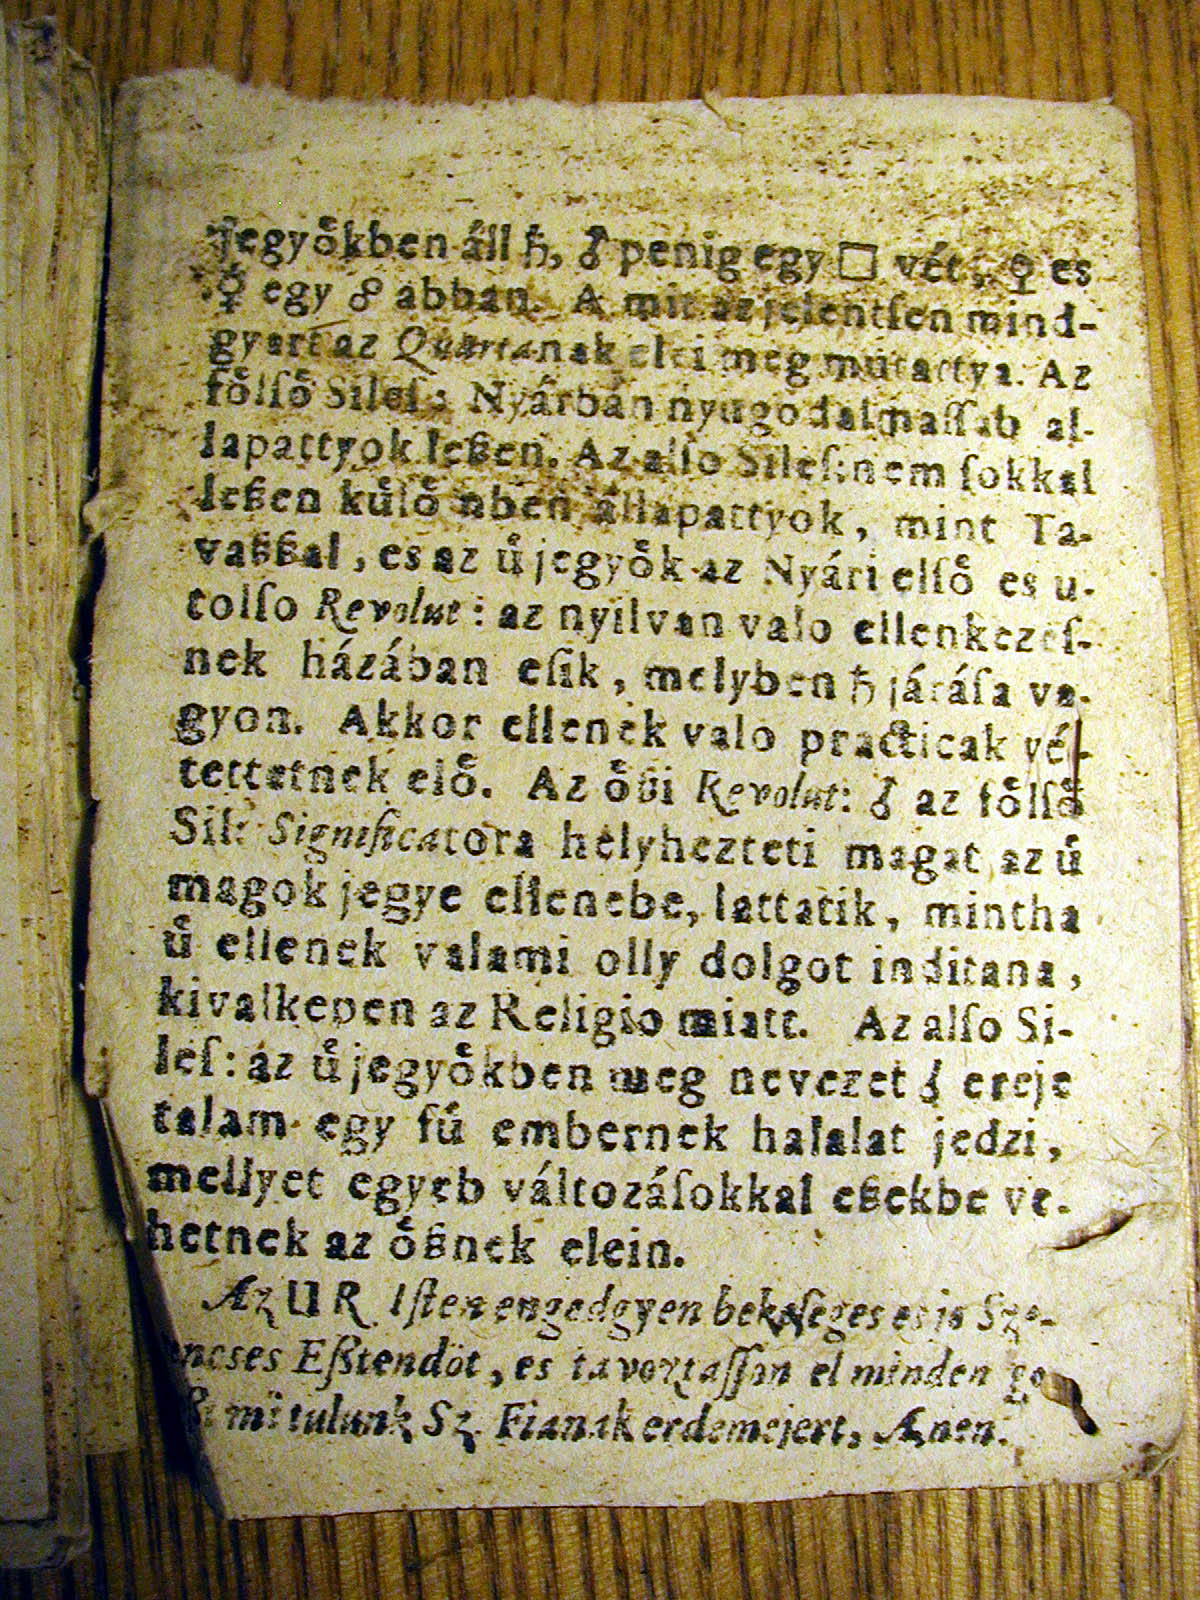 jegyo̊kben áll ♄, ♂ penig egy □ vét, ♀ es
☿ egy ☍ abban. A mit az jelentſen mind-
gyart az Quartanak elei meg mutattya. Az
fo̊lſo̊ Sileſ: Nyárbán nyugodalmaſſab al-
lapattyok leßen. Az alſo Sileſ: nem ſokkal
leßen ku̇lo̊ nben állapattyok, mint Ta-
vaßßal, es az ů jegyo̊k az Nyári elſo̊ es u-
tolſo Revolut: az nyilvan valo ellenkezeſ-
nek házában eſik, melyben ♄ járáſa va-
gyon. Akkor ellenek valo practicak vé-
tettetnek elo̊. Az o̊ßi Revolut: ♂ az fo̊lſo̊
Sil: Significatora helyhezteti magat az ů
magok jegye ellenebe, lattatik, mintha
ů ellenek valami olly dolgot inditana,
kivalkepen az Religio miatt. Az alſo Si-
leſ: az ů jegyo̊kben meg nevezet ♂ ereje
talam egy fů embernek halalat jedzi,
mellyet egyeb változáſokkal eßekbe ve-
hetnek az o̊ßnek elein.
Az UR Iſten engedgyen bekeſeges es jo Sze-
encses Eßtendöt, es tavoztaſſon el minden go-
mi tulunk Sz. Fianak erdemejert, Amen.